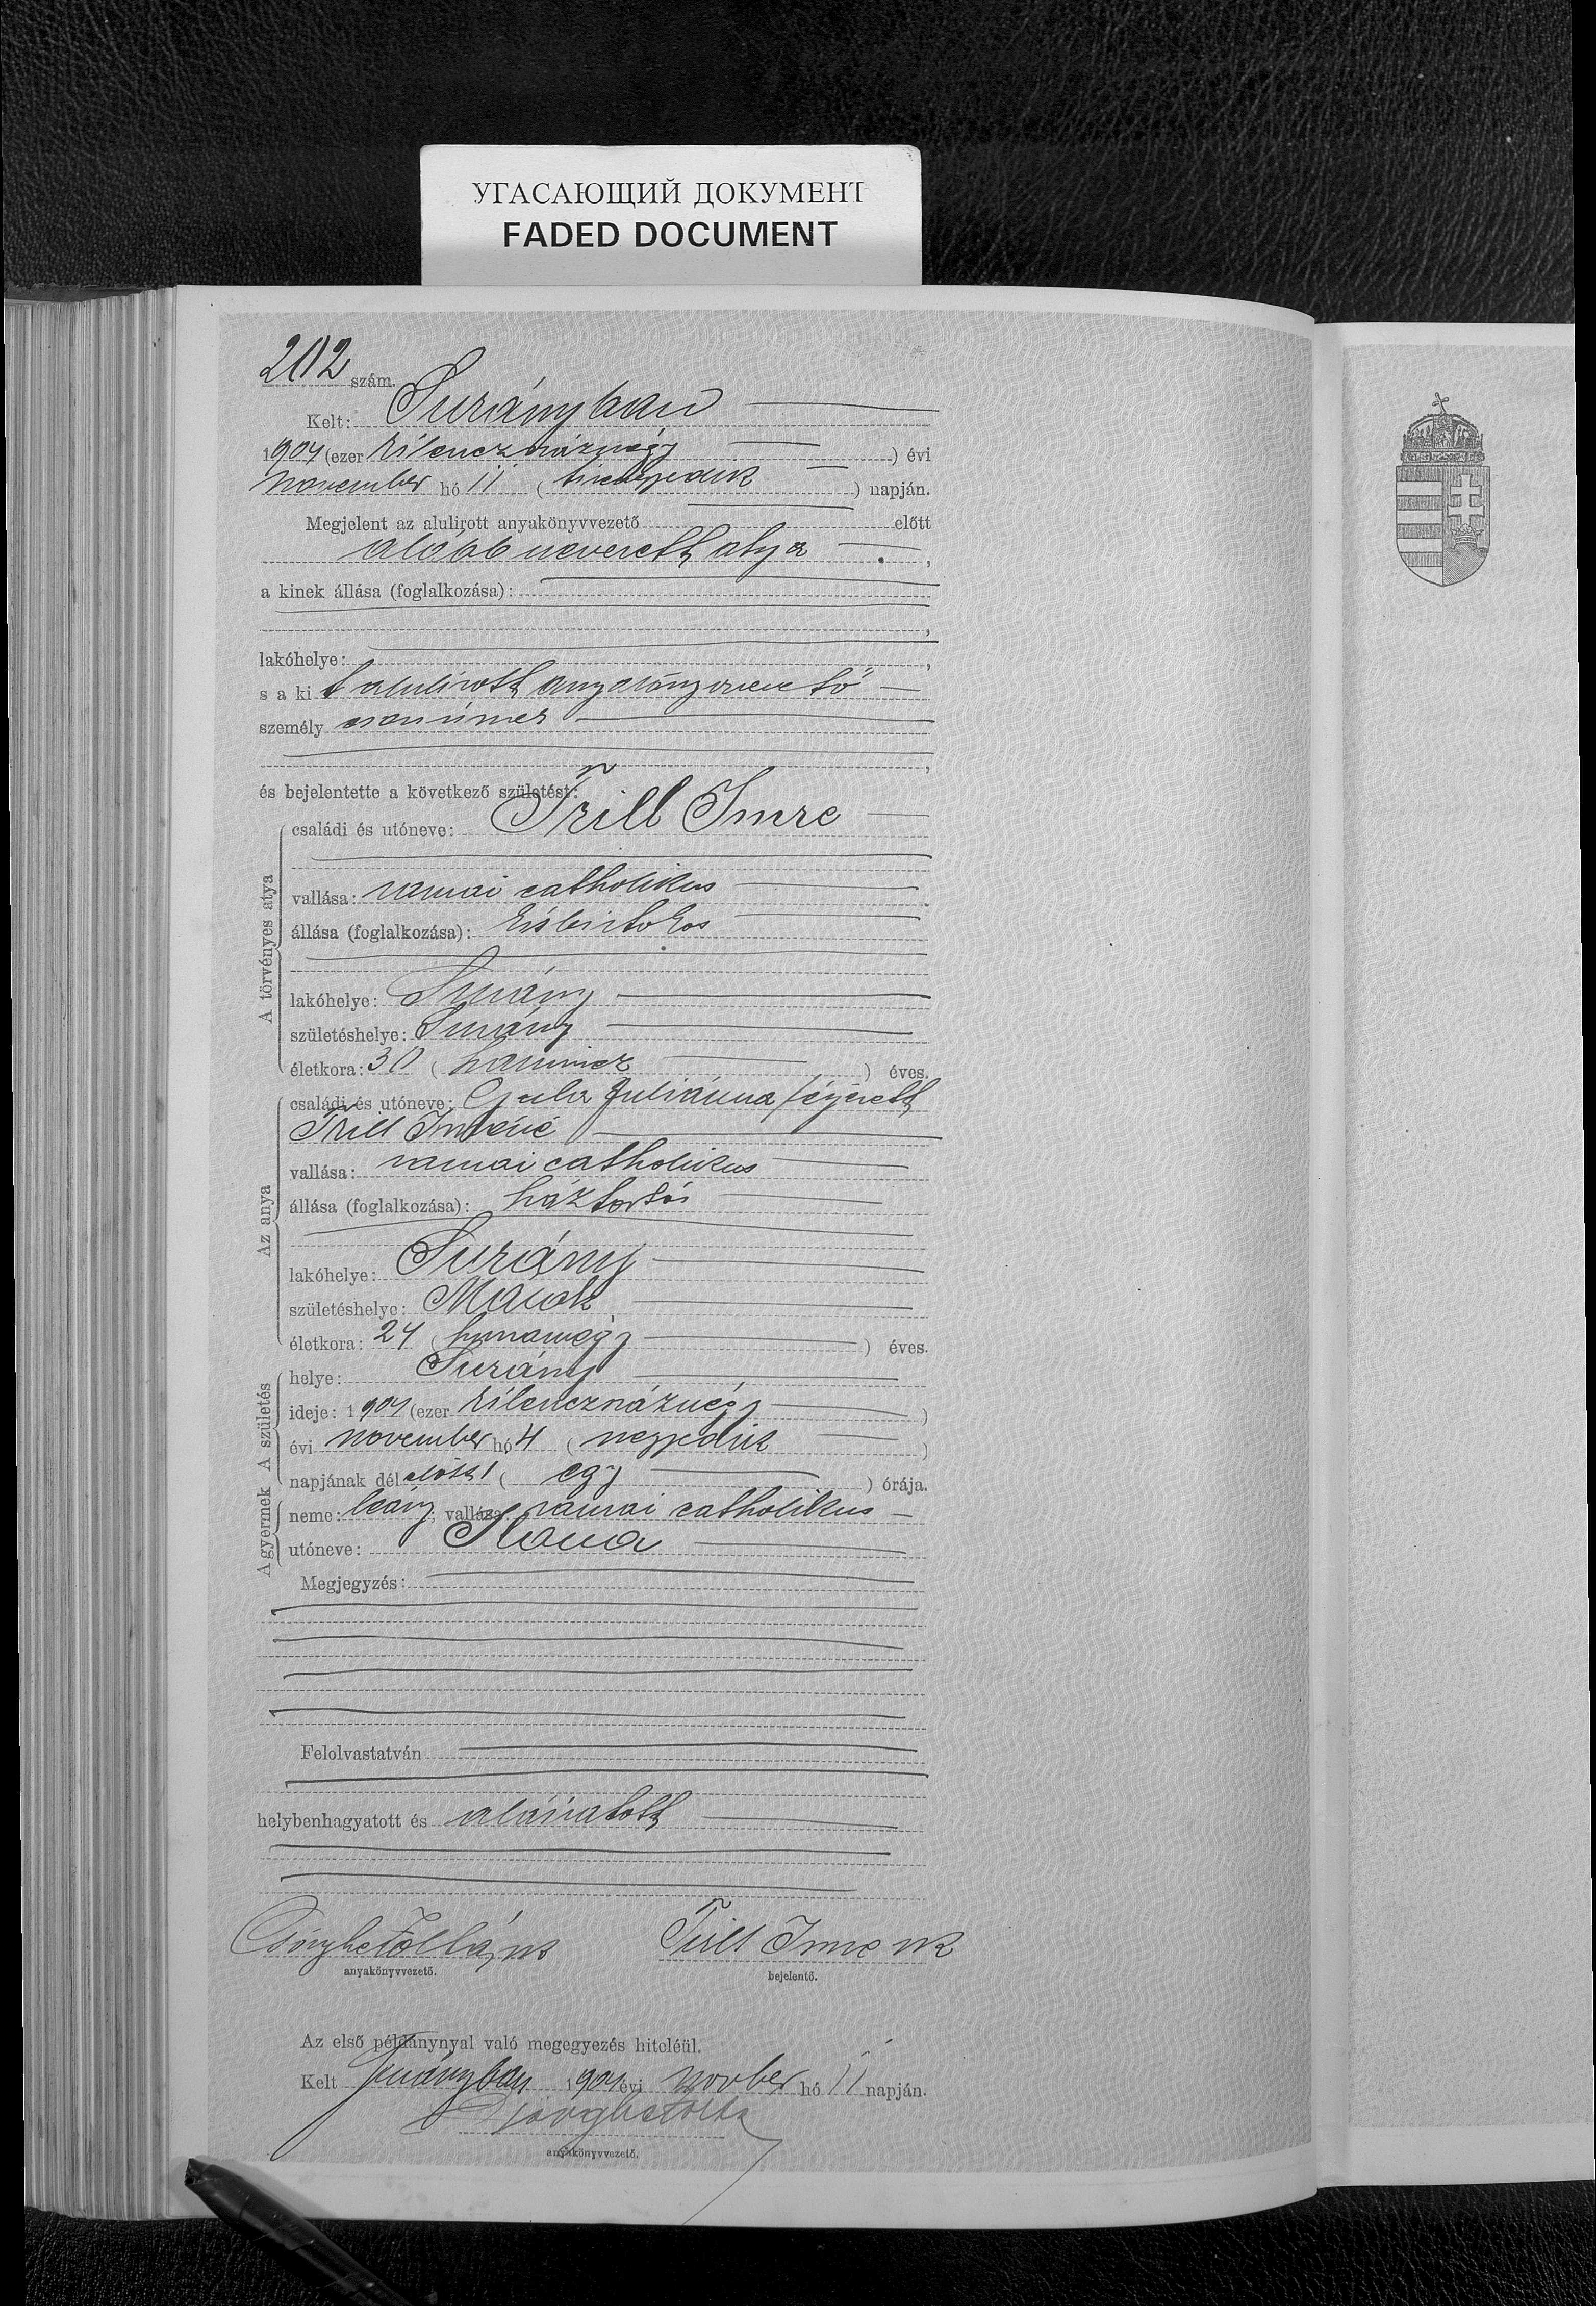 УГАСАЮЩИЙ ДОКУМЕНТ
FADED DOCUMENT
202 szám.
Kelt: Surányban
1904 (ezer kilenczszáznégy ) évi
november hó 11 ( tizenegyedik ) napján.
Megjelent az alulirott anyakönyvvezető előtt
alább nevezett atya ,
a kinek állása (foglalkozása):
,
lakóhelye: ,
s a ki t alulirott anyakönyvvezető
személy ismer
,
és bejelentette a következő születést:
A törvényes atya
családi és utóneve: Trill Imre
vallása: római catholikus
állása (foglalkozása): kisbirtokos
lakóhelye: Surány
születéshelye: Surány
életkora: 30 ( harmincz ) éves.
Az anya
családi és utóneve: Juliánna férjezett
Trill Imréné
vallása: római catholikus
állása (foglalkozása): háztartás
lakóhelye: Surány
születéshelye:
életkora: 24 ( huszonnégy ) éves.
A születés
helye: Surány
ideje: 1904 (ezer kilenczszáznégy )
évi november hó 4 ( negyedik )
napjának dél előtt 1 ( egy ) órája.
A gyermek
neme: leány; vallása: római catholikus
utóneve: Ilona
Megjegyzés:
Felolvastatván
helybenhagyatott és aláiratott
Trill Imre mk
anyakönyvvezető.
bejelentő.
Az első példánynyal való megegyezés hiteléül.
Kelt Surányban 1904 évi novber hó 11 napján.
anyakönyvvezető.